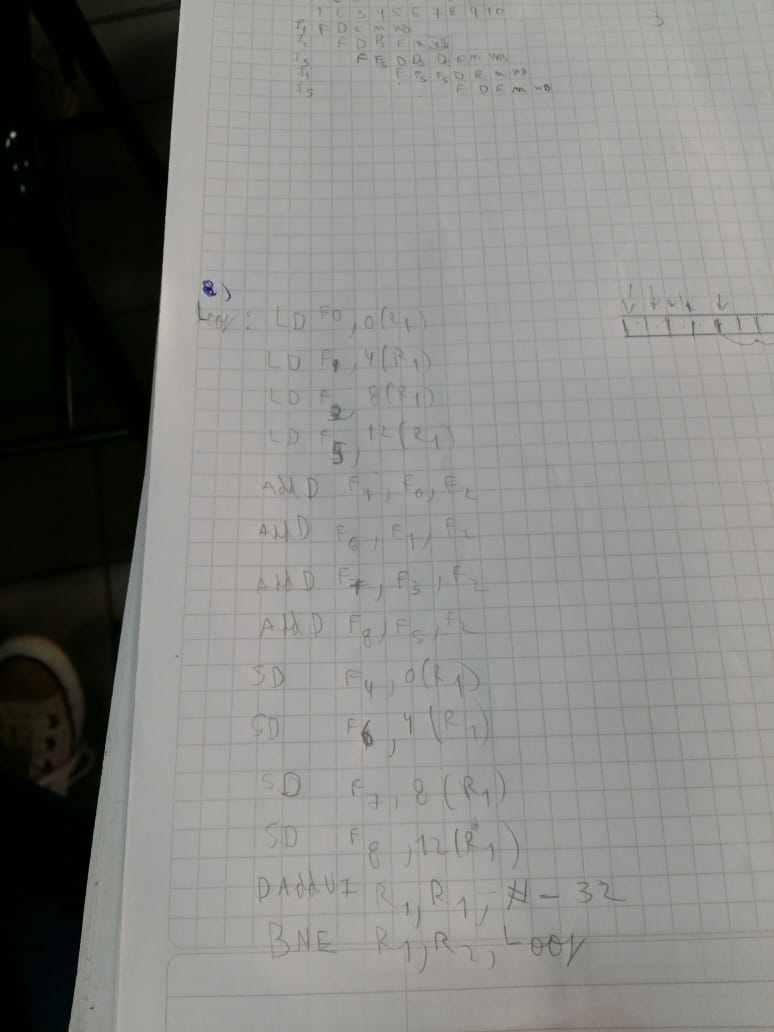 1 2 3 4 5 6 7 8 9 10
3
I1 F D E M WB
F D
I5 F D E M WB
2)
Loop: LD F0, 0(R1)
LD F1, 4(R1)
LD F3, 8(R1)
LD F5, 12(R1)
AddD F4, F0, F2
AddD F6, F1, F2
AddD F7, F3, F2
AddD F8, F5, F2
SD F4, 0(R1)
SD F6, 4(R1)
SD F7, 8(R1)
SD F8, 12(R1)
DAddUI R1, R1, #-32
BNE R1, R2, Loop